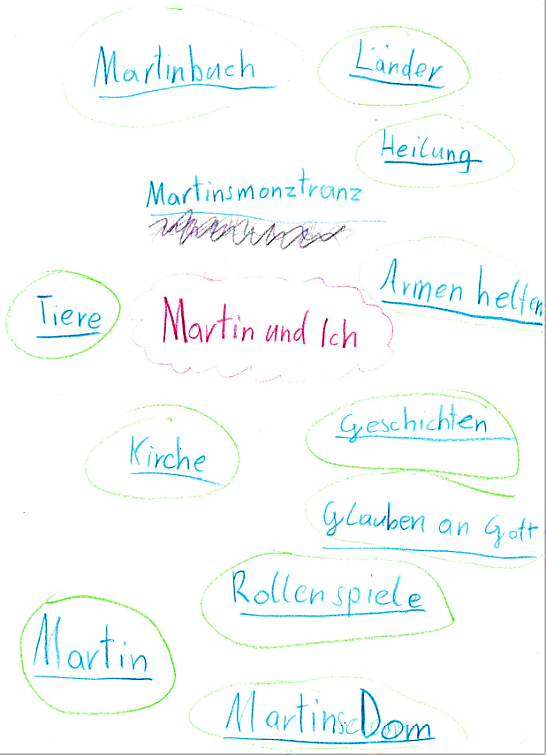 Martinbuch
Länder
Heilung
Martinsmonztranz
Armen helfen
Tiere
Martin und Ich
Geschichten
Kirche
Glauben an Gott
Rollenspiele
Martin
MartinsDom